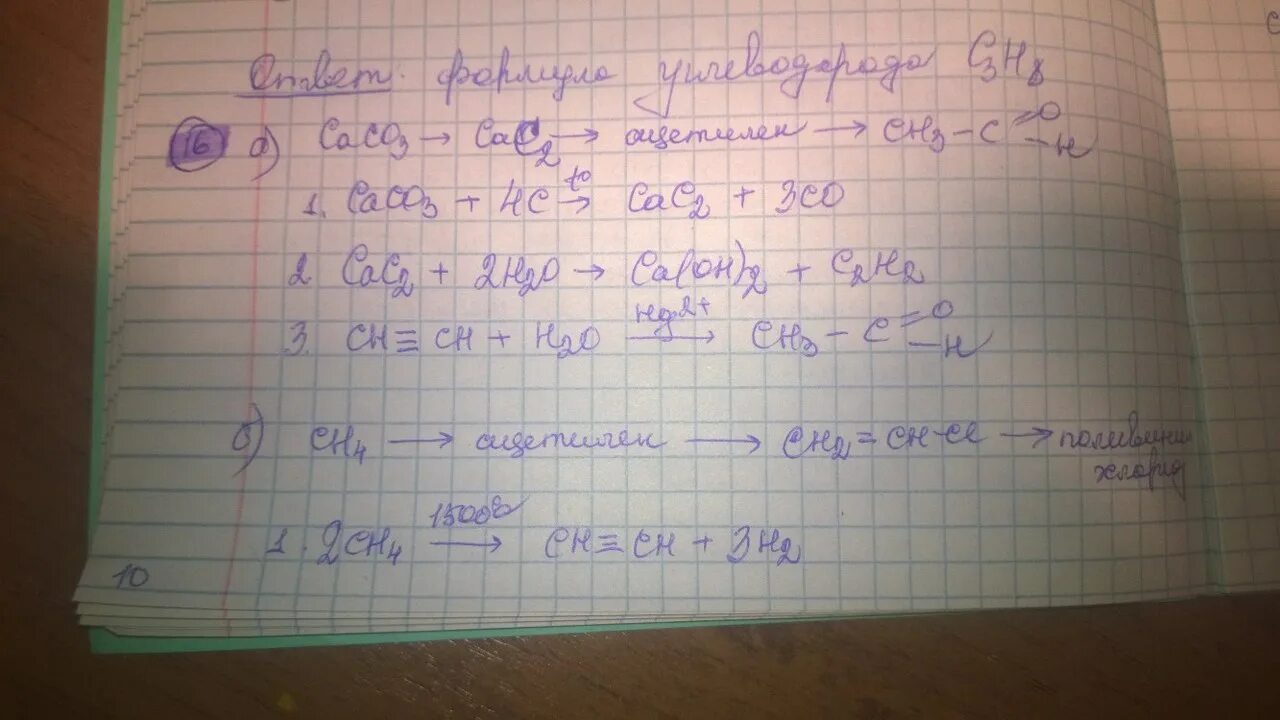 Ответ: формула углеводорода C₃H₈
16 а) CaCO₃ → CaC₂ → ацетилен → CH₃ – C =O –H
1. CaCO₃ + 4C t° → CaC₂ + 3CO
2. CaC₂ + 2H₂O → Ca(OH)₂ + C₂H₂
3. CH≡CH + H₂O Hg²⁺ → CH₃ – C =O –H
б) CH₄ → ацетилен → CH₂=CH–Cl → поливинил
хлорид
1. 2CH₄ 1500° → CH≡CH + 3H₂
10